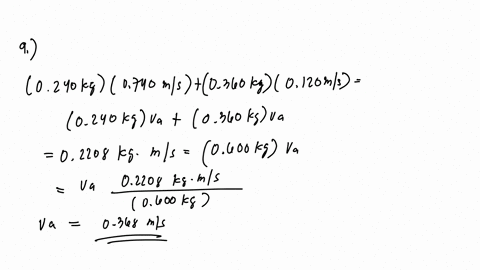 9.)
(0.240 kg)(0.740 m/s)+(0.360 kg)(0.120 m/s) =
(0.240 kg) va + (0.360 kg) va
= 0.2208 kg · m/s = (0.600 kg) va
= va 0.2208 kg · m/s
(0.600 kg)
va = 0.368 m/s